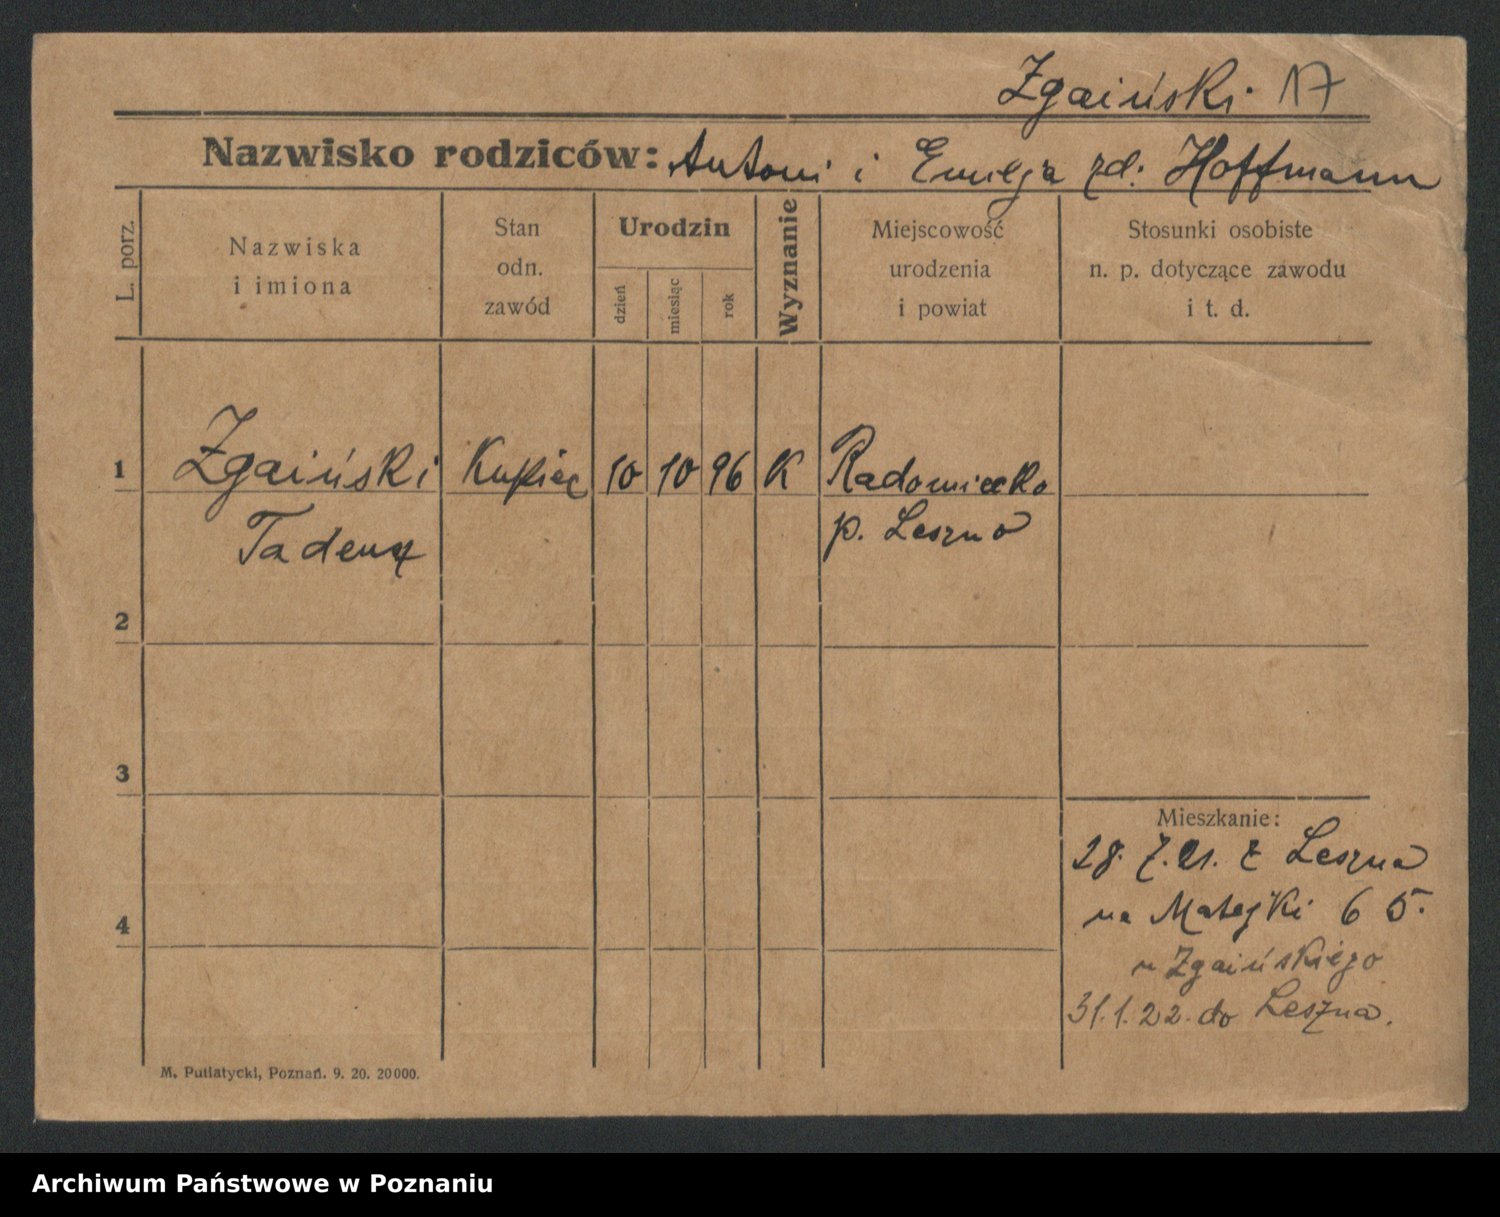 Zgaiński 17
Nazwisko rodziców: Antoni i Emilja zd: Hoffmann
L. porz.
Nazwiska
i imiona
Stan
odn.
zawód
Urodzin
dzień
miesiąc
rok
Wyznanie
Miejscowość
urodzenia
i powiat
Stosunki osobiste
n. p. dotyczące zawodu
i t. d.
1 Zgaiński Kupiec 10 10 96 K Radomicko
Tadeusz p. Leszno
2
3
Mieszkanie:
28. 7. 21. z Leszna
4 na Matejki 65.
u Zgaińskiego
31. 1. 22. do Leszna.
M. Putiatycki, Poznań. 9. 20. 20000.
Archiwum Państwowe w Poznaniu